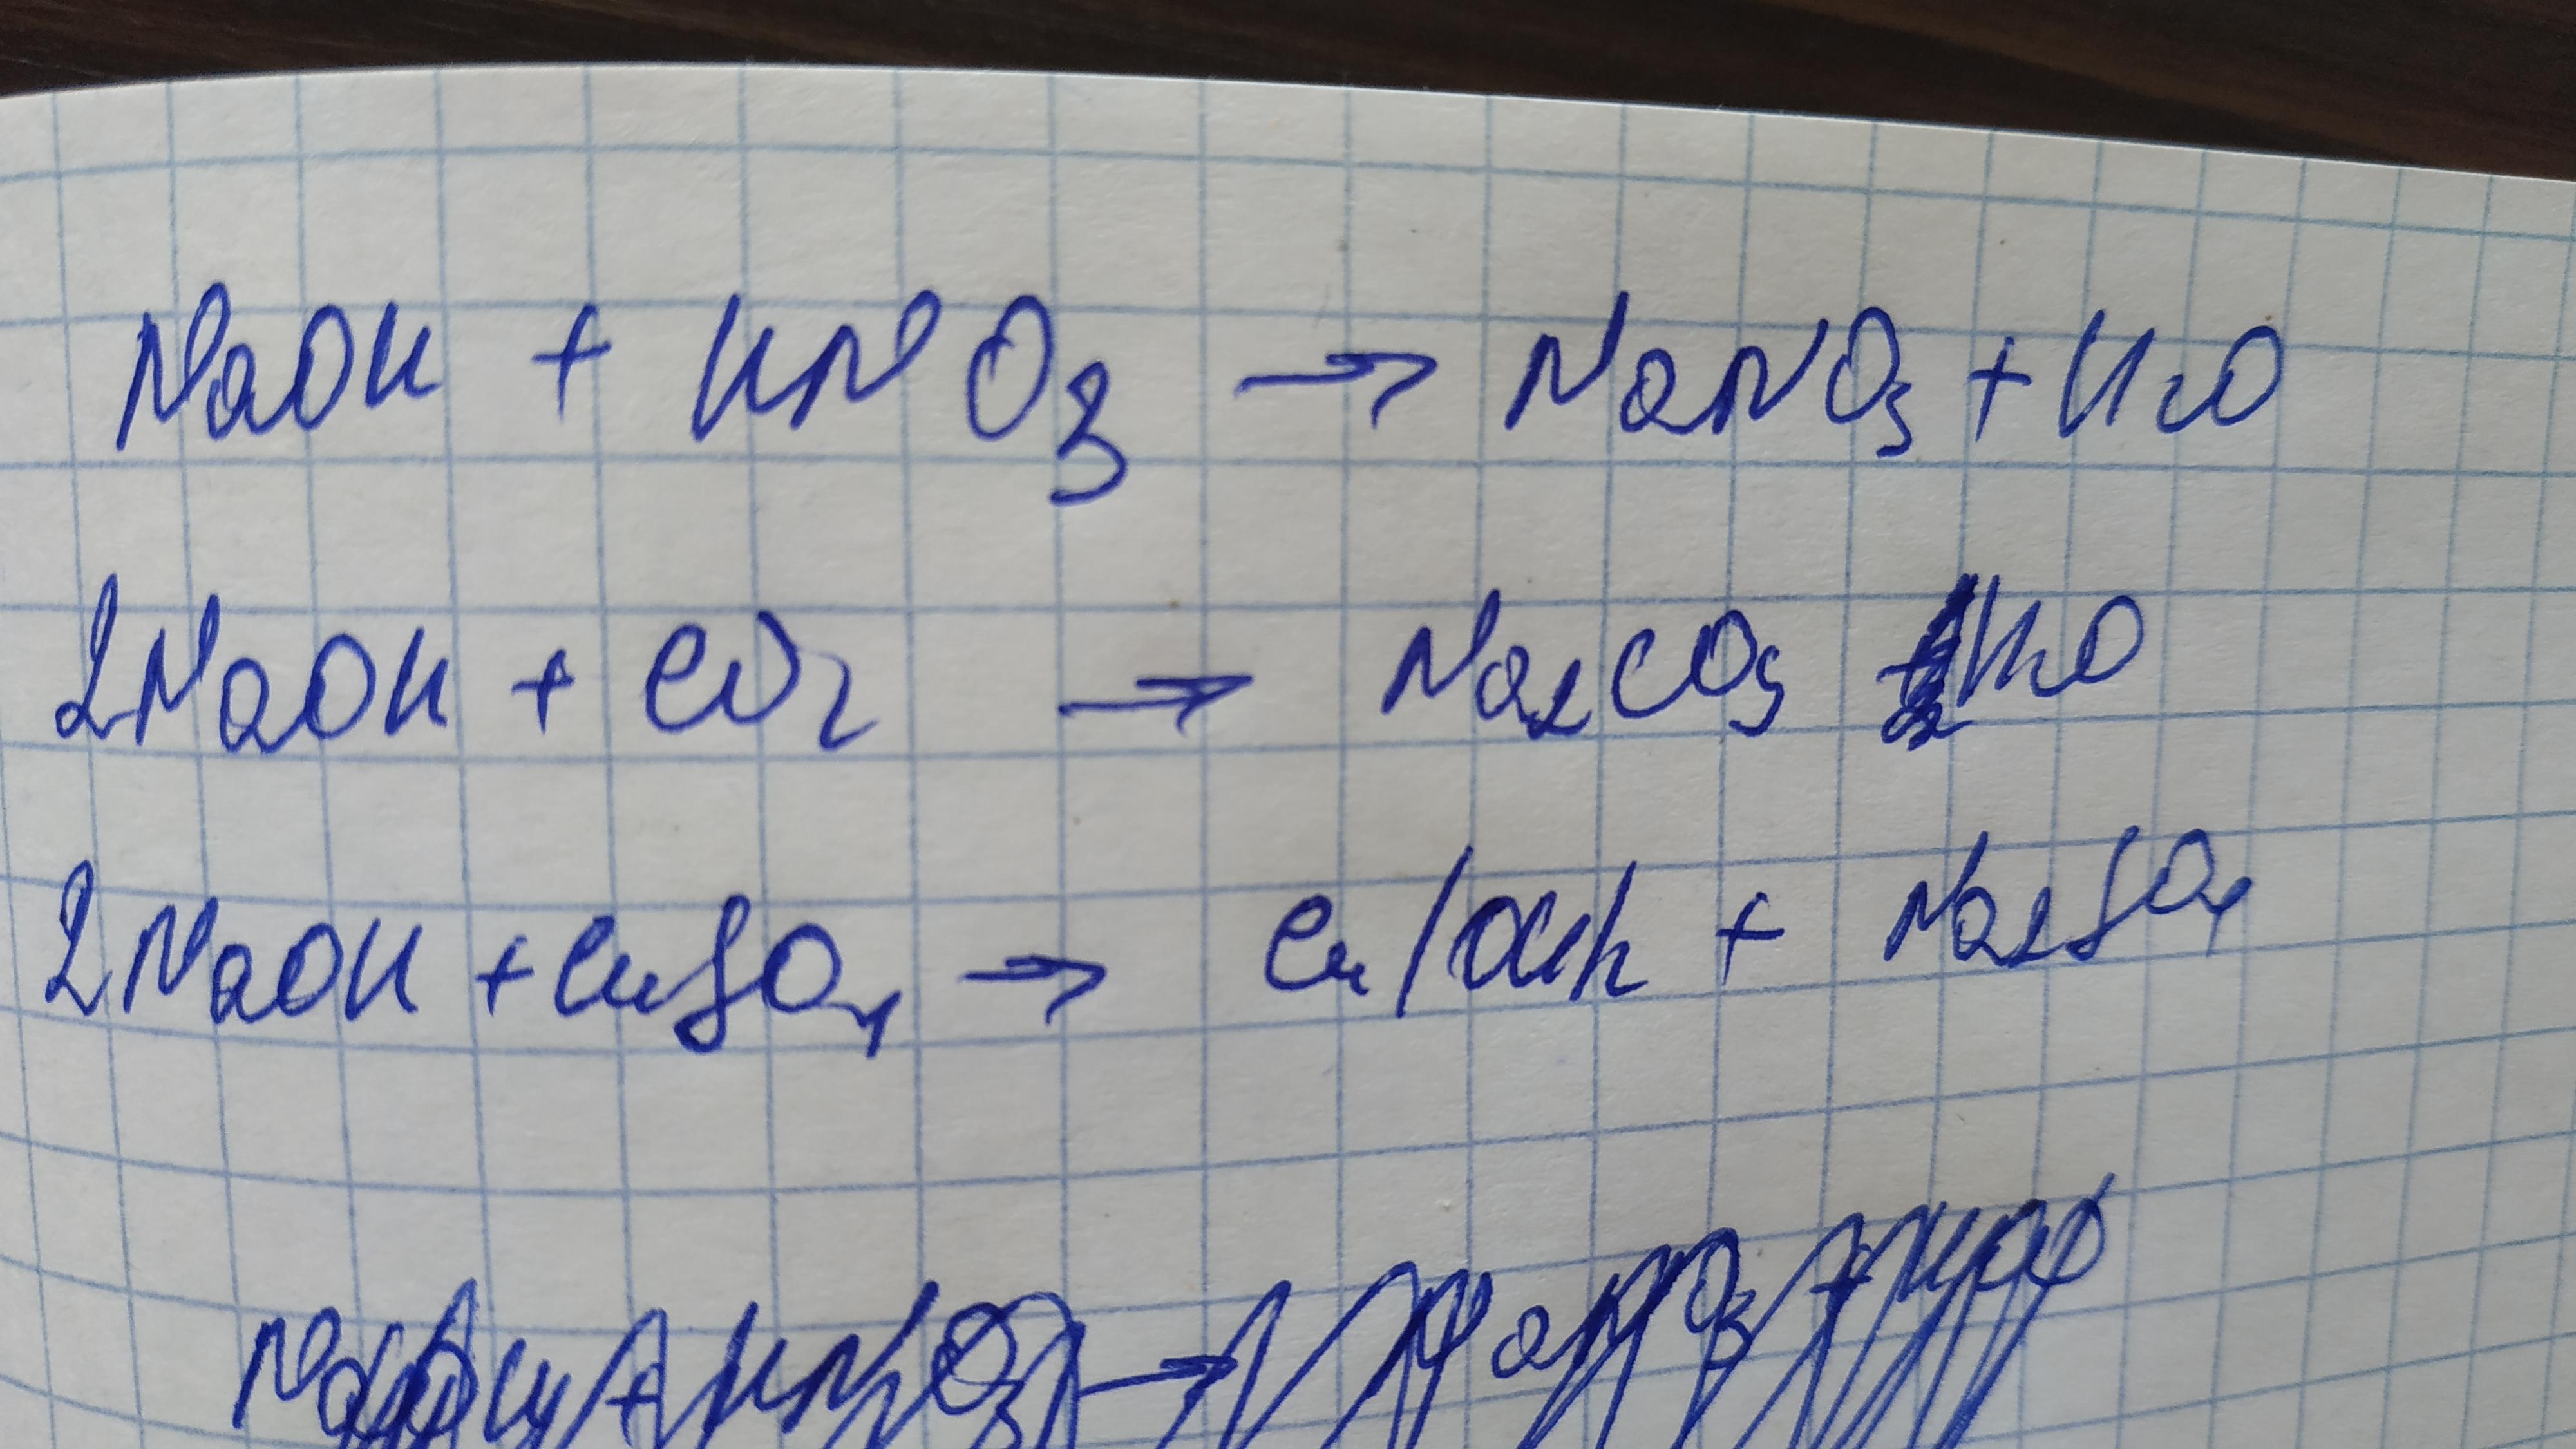 NaOH + HNO₃ → NaNO₃ + H₂O
2NaOH + CO₂ → Na₂CO₃ H₂O
2NaOH + CuSO₄ → Cu(OH)₂ + Na₂SO₄